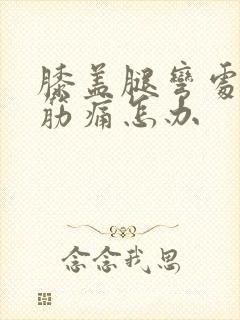 膝盖腿弯处
筋痛怎办
念念我思